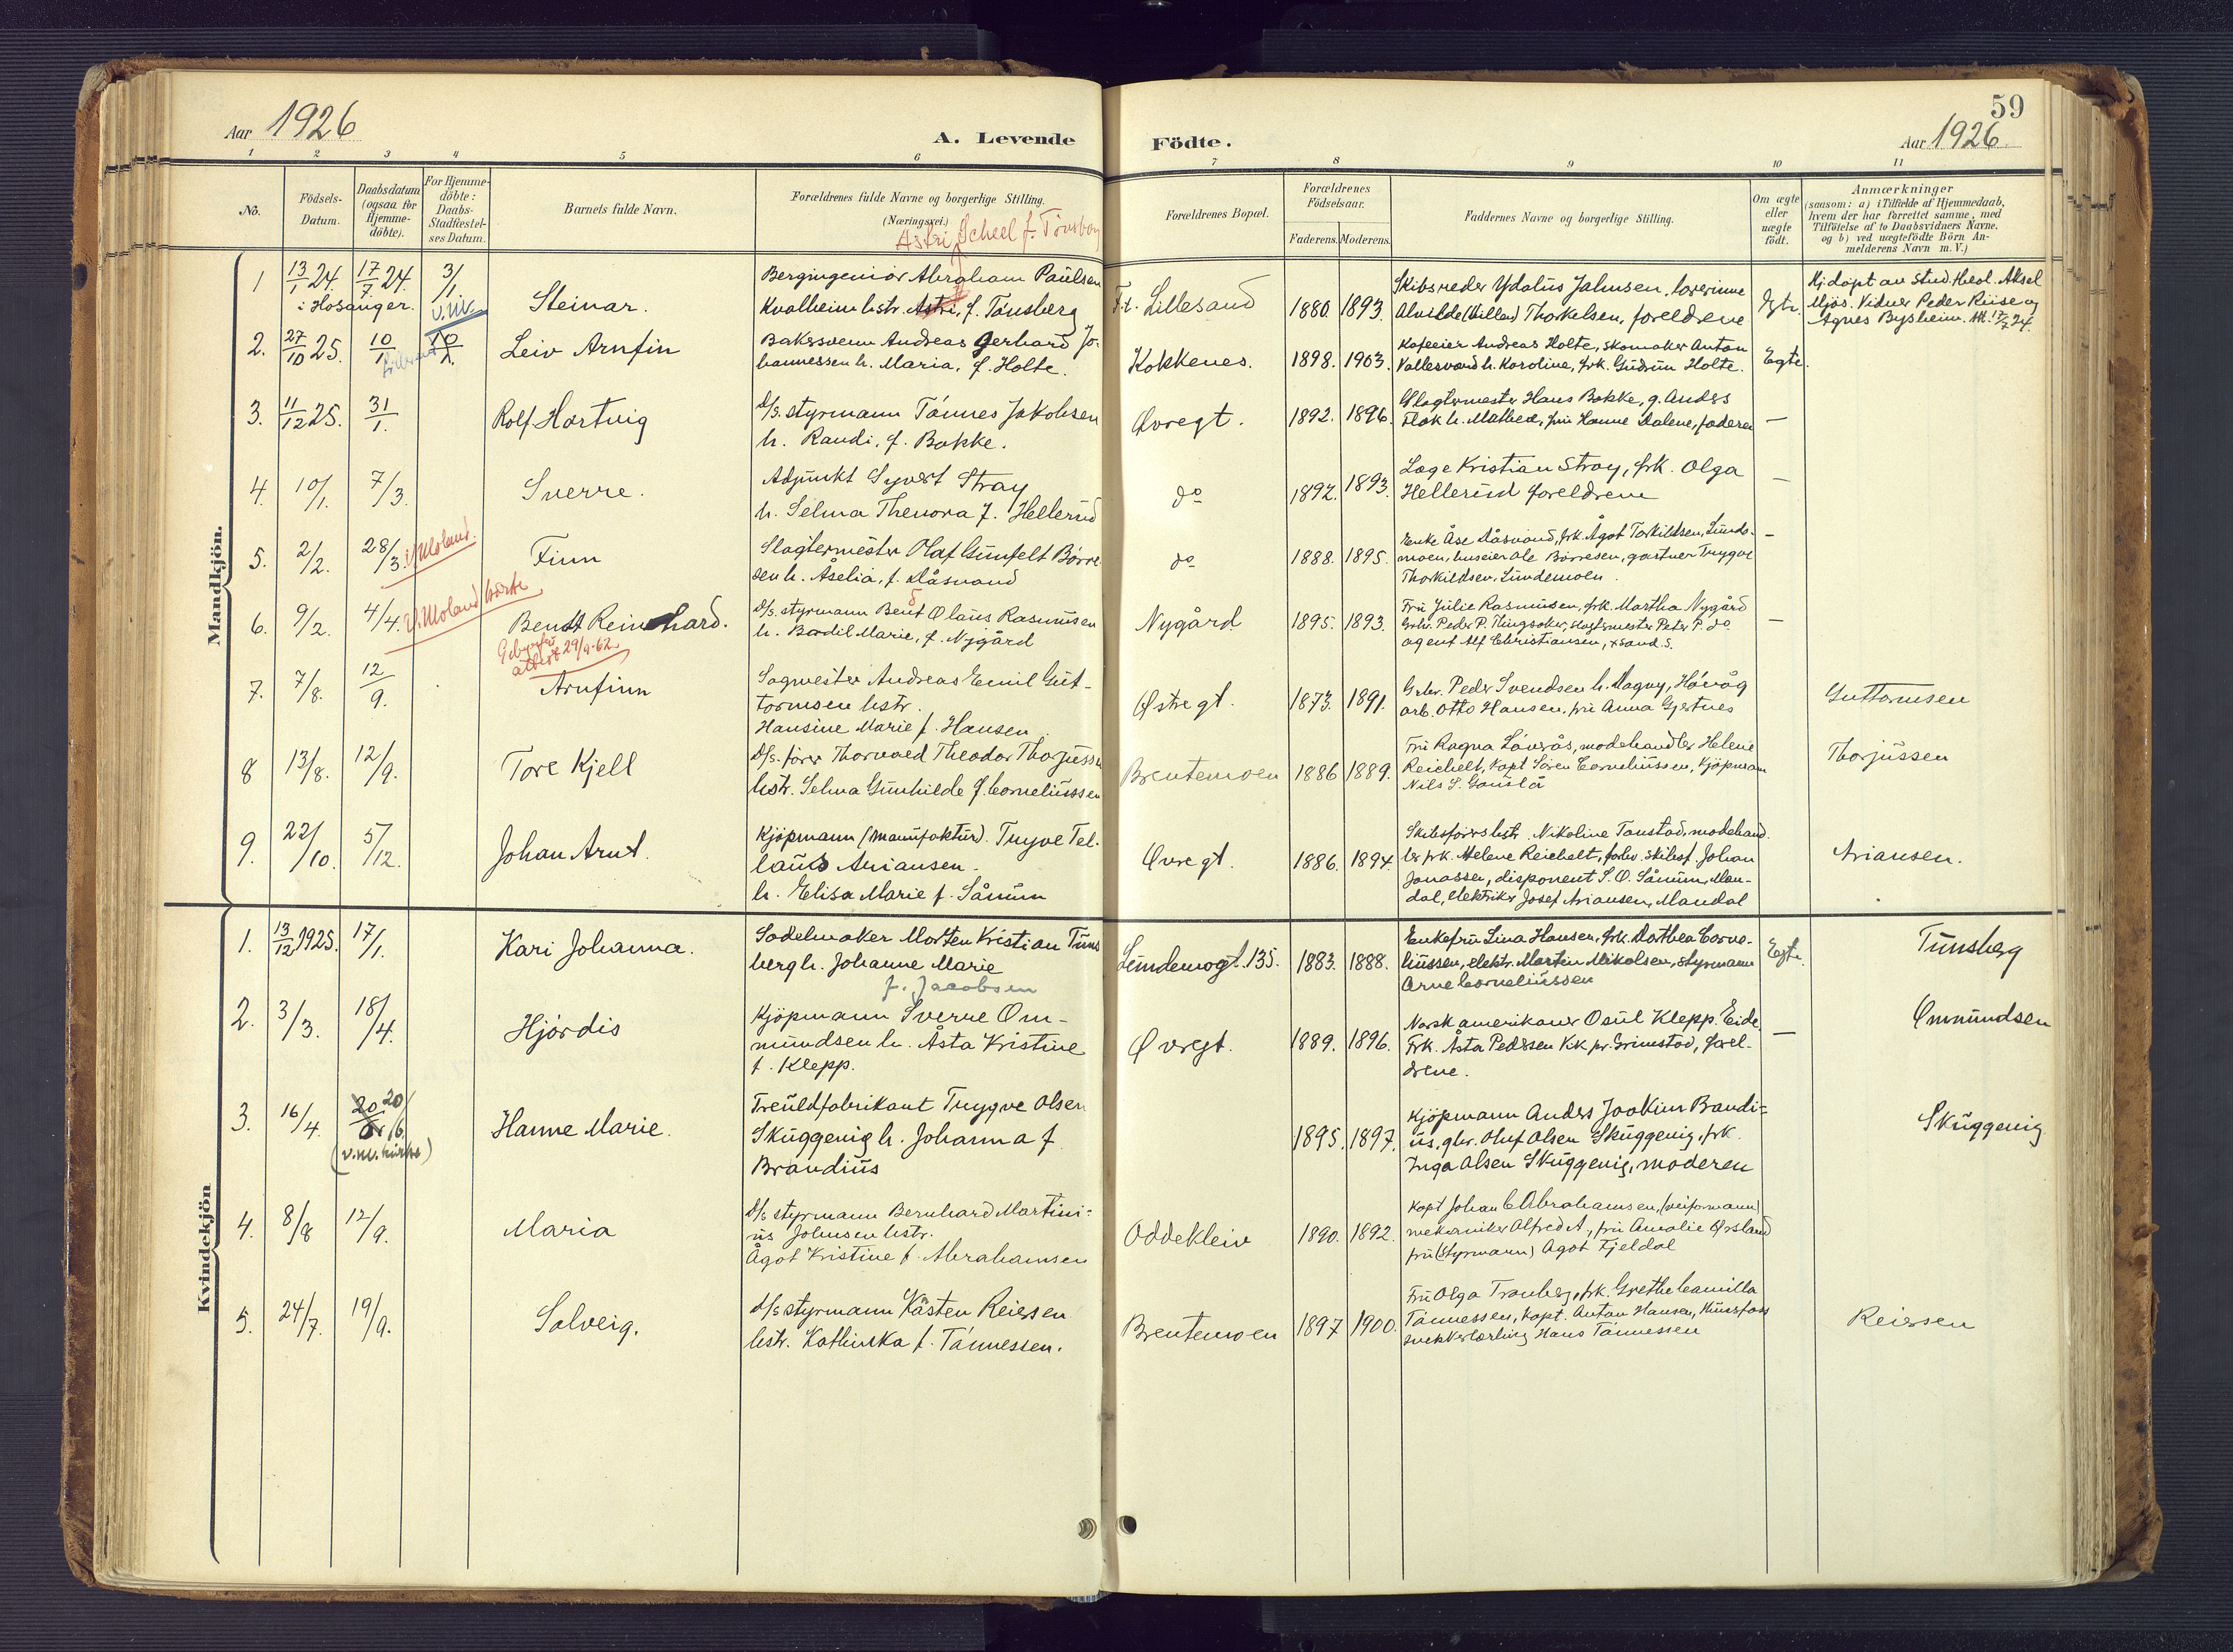 59
Aar 1926
A. Levende
Födte.
Aar 1926
1 2 3 4 5 6 7 8 9 10 11
No.
Födsels-
Datum.
Daabsdatum
(ogsaa for
Hjemme-
döbte).
For Hjemme-
döbte:
Daabs-
Stadfæstel-
ses Datum.
Barnets fulde Navn.
Forældrenes fulde Navne og borgerlige Stilling.
(Næringsvei.)
Astri Scheel f. Tönsberg
Forældrenes Bopæl.
Forældrenes
Födselsaar.
Faderens. Moderens.
Faddernes Navne og borgerlige Stilling.
Om ægte
eller
uægte
födt.
Anmærkninger
(saasom: a) i Tilfælde af Hjemmedaab,
hvem der har forrettet samme, med
Tilföielse af to Daabsvidners Navne.
og b) ved uægtefödte Börn An-
melderens Navn m. V.)
Mandkjön.
1 13/1 24. 17/7 24. 3/1
i Hosanger. v.m.
Steinar.
Bergingeniör Abraham Paulsen
Kvalheim hstr. Astri, f. Tönsberg
F.t. Lillesand
1880. 1893.
Skibsreder Ydalus Jahnsen, lærerinne
Alvilde (Villa) Thorkelsen, foreldrene
Egte.
Hj.döpt av stud. theol. Aksel
Mjös. Vidner Peder Riise og
Agnes Bysheim. 17/7 24.
2. 27/10 25. 10/1 10/1.
Leiv Arnfin
Bakersvenn Andreas Gerhard Jo-
hannessen h. Maria, f. Holte.
Kokkenes.
1898. 1903.
Kafeeier Andreas Holte, skomaker Anton
Vallesvand h. Karoline, frk. Gudrun Holte.
Egte.
3. 11/12 25. 31/1.
Rolf Hartvig
D/s. styrmann Tönnes Jakobsen
h. Randi, f. Bakke.
Övregt.
1892. 1896.
Slagtermester Hans Bakke, g. Anders
Flak h. Mathea, fru Hanne Dalene, faderen
—
4. 10/1. 7/3.
Sverre.
Adjunkt Syvert Stray
h. Selma Thenora f. Hellerud
do
1892. 1893.
Læge Kristian Stray, frk. Olga
Hellerud foreldrene
—
5. 2/2. 28/3. i V. Moland.
Finn
Slagtermester Olaf Gunfelt Börre-
sen h. Åselia, f. Dåsvand
do
1888. 1895.
Enke Åse Dåsvand, frk. Ågot Torkildsen, Lunde-
moen, huseier Ole Börresen, gartner Trygve
Thorkildsen, Lundemoen.
—
6. 9/2. 4/4. V. Moland kirke
Bendt Reinhard.
D/s. styrmann Bent Olaus Rasmussen
h. Bodil Marie, f. Nygård
Nygård
1895. 1893.
Fru Julie Rasmussen, frk. Martha Nygård
Grbr. Peder P. Tingsaker, slagtermester Peter P. do.
agent Alf Christiansen, Xsand. S.
—
attest 29/9-62
7. 7/8. 12/9.
Arnfinn
Sagmester Andreas Emil Gut-
tormsen hstr.
Hansine Marie f. Hansen
Östregt.
1873. 1891.
Grbr. Peder Svendsen h. Magny, Hövåg
arb. Otto Hansen, fru Anna Gjertnes
Guttormsen
8 13/8. 12/9.
Tore Kjell
D/s. förer Thorvald Theodor Thorjussen
hstr. Selma Gunhilde f. Corneliussen
Brentemoen
1886 1889.
Fru Ragna Löverås, modehandler Helene
Reichelt, kapt Sören Corneliussen, Kjöpmann
Nils S. Gauslå
Thorjussen
9. 22/10. 5/12.
Johan Arnt.
Kjöpmann (manufaktur). Trygve Tel-
laus Ariansen.
h. Elisa Marie f. Sånum
Övregt.
1886. 1894.
Skibsförers hstr. Nikoline Tanstad, modehand-
ler frk. Helene Reichelt, forhv. skibsf. Johan
Jonassen, disponent S. O. Sånum, Man-
dal, elektriker Josef Ariansen, Mandal
Ariansen.
Kvindekjön
1. 13/12 1925. 17/1.
Kari Johanna.
Sadelmaker Morten Kristian Tuns-
berg h. Johanne Marie
f. Jacobsen
Lundemogt. 135.
1883. 1888.
Enkefru Lina Hansen, frk. Dorthea Corne-
liussen, elektr. Martin Mikalsen, styrmann
Arne Corneliussen
Egte.
Tunsberg
2. 3/3. 18/4.
Hjördis
Kjöpmann Sverre Om-
mundsen h. Åsta Kristine
f. Klepp.
Övregt.
1889. 1896.
Norskamerikaner Osul Klepp. Eide
Frk. Åsta Pedersen Vik pr. Grimstad, forel-
drene.
—
Ommundsen
3. 16/4. 20/6.
(v.m. kirke)
Hanne Marie.
Treuldfabrikant Trygve Olsen
Skuggevig h. Johanna f.
Brandius
1895. 1897.
Kjöpmann Anders Joakim Brandi-
us, gbr. Oluf Olsen Skuggevig, frk.
Inga Olsen Skuggevig, moderen
Skuggevig
4. 8/8 12/9.
Maria
D/s styrmann Bernhard Martini-
us Johnsen hstr.
Ågot Kristine f. Abrahamsen
Oddekleiv
1890. 1892.
Kapt Johan C Abrahamsen,
mekaniker Alfred A., fru Amalie Örsland
fru (styrmann) Agot Fjeldal
5. 24/7. 19/9.
Solveig.
D/s styrmann Kåsten Reiersen
hstr. Kathinka f. Tönnessen.
Brentemoen
1897 1900.
Fru Olga Tranberg, frk. Grethe Camilla
Tönnessen, Kapt. Anton Hansen,
snekkerlærling Hans Tönnessen
Reiersen